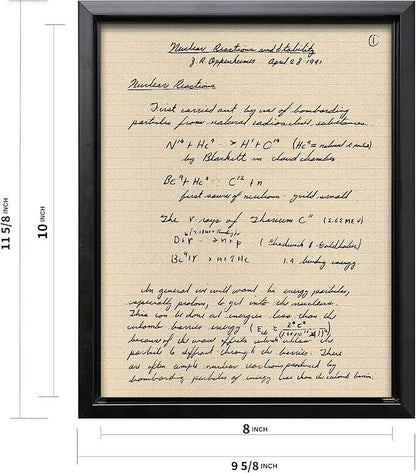 ①
Nuclear Reactions and Stability
J. R. Oppenheimer April 28 1941
Nuclear Reactions
First carried out by use of bombarding
particles from natural radioactive substances.
N¹⁴ + He⁴ → H¹ + O¹⁷ (He⁴ = natural α rays)
by Blackett in cloud chamber
Be⁹ + He⁴ → C¹² + n
first source of neutrons - yield small
The γ-rays of Thorium C" (2.62 MeV)
D + γ → n + p (Chadwick & Goldhaber)
Be⁹ γ → n + 2He 1.9 binding energy
In general we will want the energy particles,
especially protons, to get into the nucleus.
This can be done at energies less than the
coulomb barrier energy
because of the wave effects which allow the
particle to diffract through the barrier. There
are often ample nuclear reactions produced by
bombarding particles of energy less than the coulomb barrier.
11 5/8 INCH
10 INCH
8 INCH
9 5/8 INCH